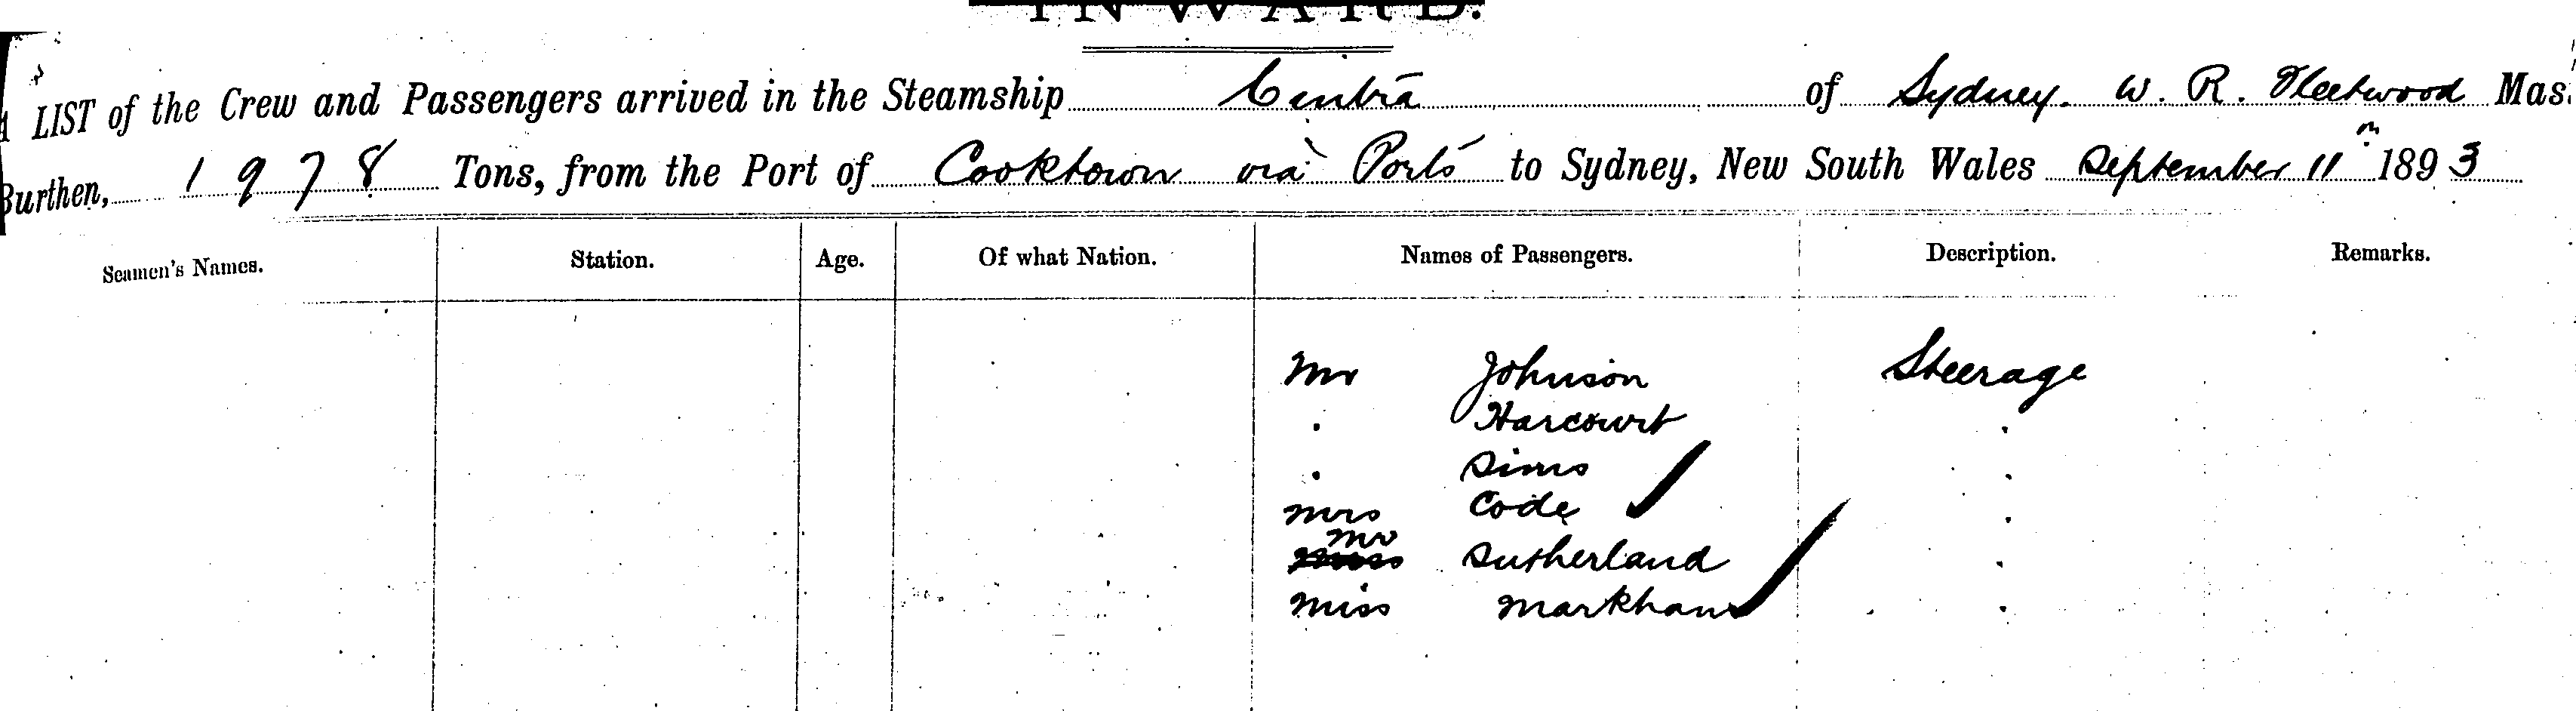 INWARD.
A LIST of the Crew and Passengers arrived in the Steamship Cintra of Sydney. W. R. Fleetwood Mas
Burthen, 1978 Tons, from the Port of Cooktown via Ports to Sydney, New South Wales September 11 1893
Seamen's Names. Station. Age. Of what Nation. Names of Passengers. Description. Remarks.
Mr Johnson Steerage
. Harcourt .
. Sims .
Mrs Code .
Mr
Sutherland .
Miss Markham .